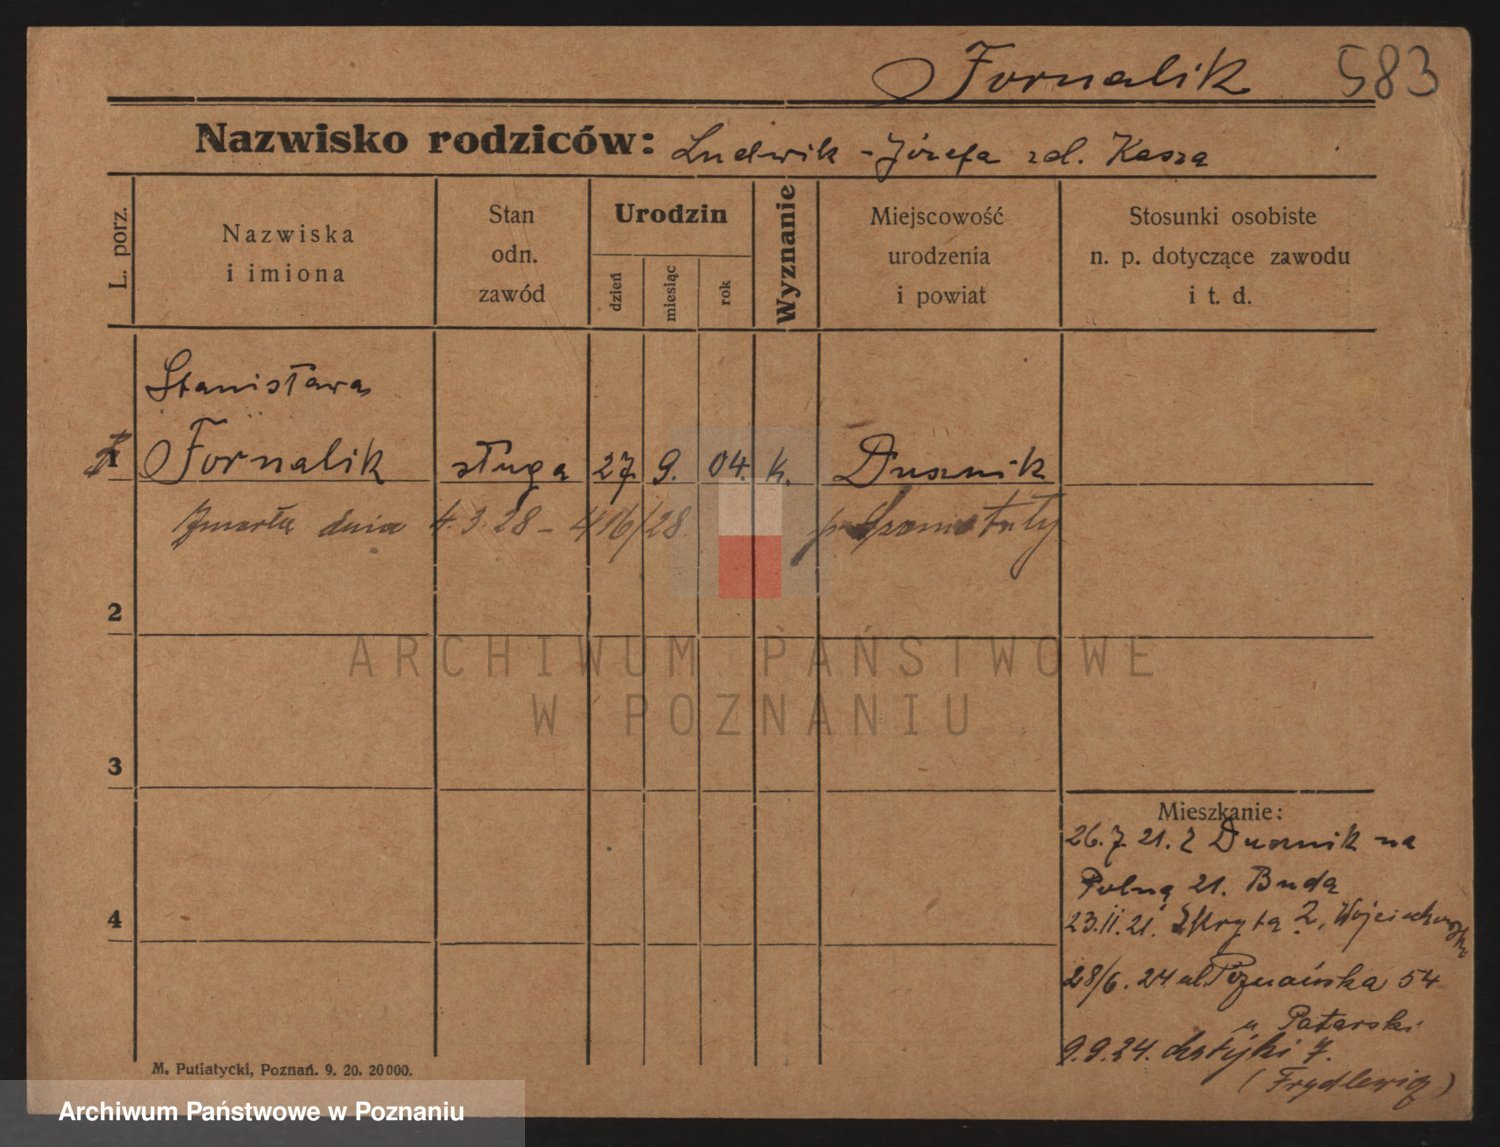 Fornalik 583
Nazwisko rodziców: Ludwik - Józefa zd. Kasza
L. porz.
Nazwiska
i imiona
Stan
odn.
zawód
Urodzin
dzień
miesiąc
rok
Wyznanie
Miejscowość
urodzenia
i powiat
Stosunki osobiste
n. p. dotyczące zawodu
i t. d.
Stanisława
1 Fornalik sługa 27. 9. 04. k. Dusznik
Zmarła dnia 4.3.28 - 416/28. p. Szamotuły
2
ARCHIWUM PAŃSTWOWE
W POZNANIU
3
Mieszkanie:
26.7.21. z Dusznik na
Polną 21. Buda
4
23.11.21. Skryta 2,
28/6.24 ul. Poznańska 54
u Patarski
9.9.24. 7.
M. Putiatycki, Poznań. 9. 20. 20000.
Archiwum Państwowe w Poznaniu